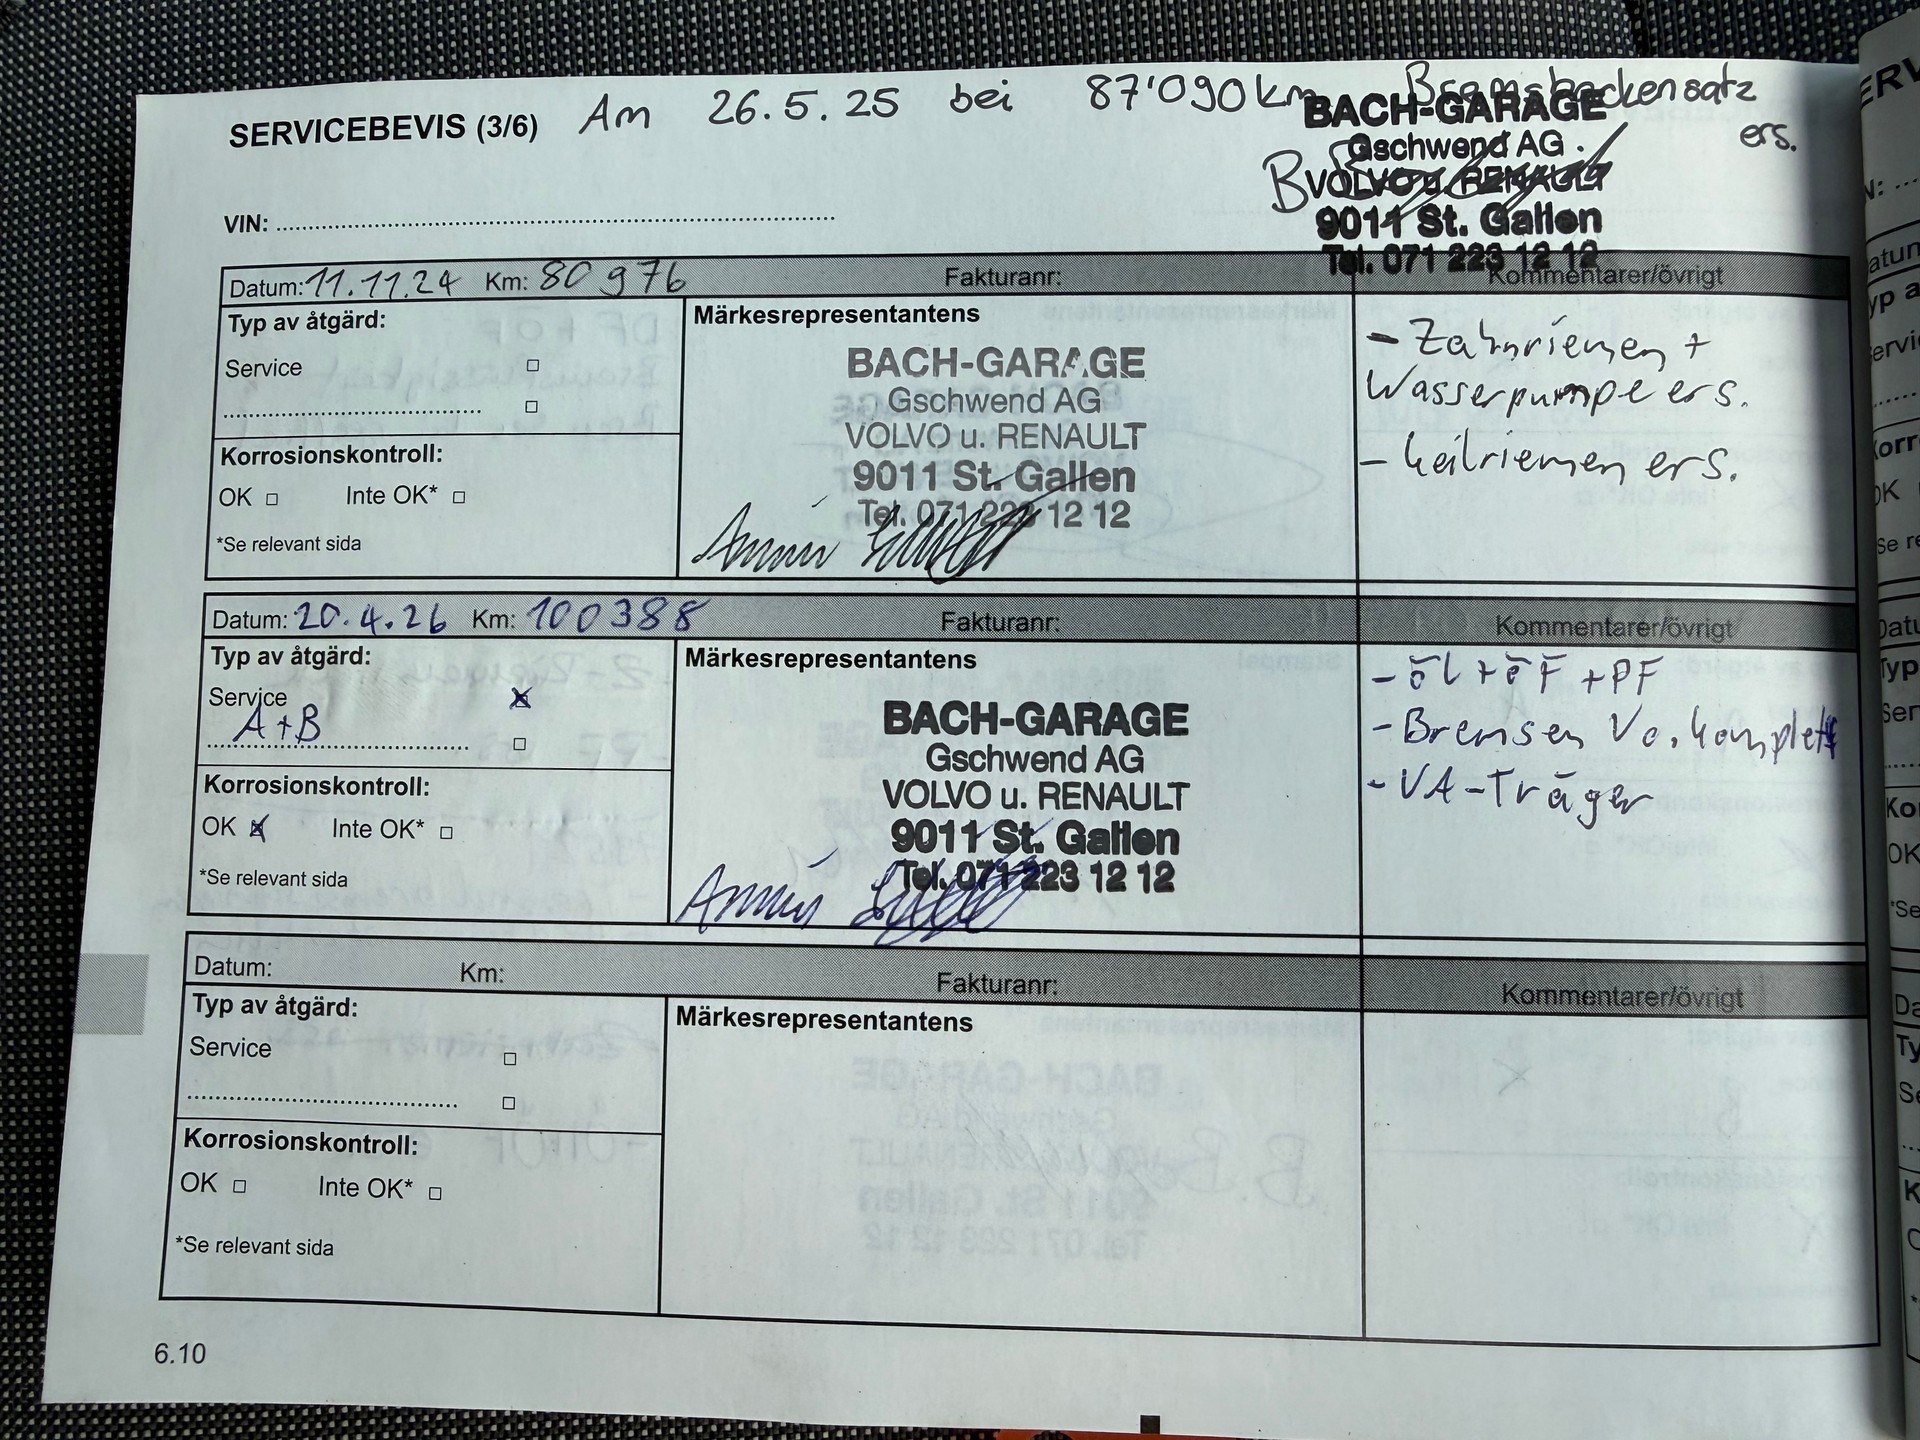 SERVICEBEVIS (3/6) Am 26.5.25 bei 87'090 km Bremsbackensatz
ers.
BACH-GARAGE
Gschwend AG
VOLVO u. RENAULT
9011 St. Gallen
Tel. 071 223 12 12
VIN:
Datum: 11.11.24 Km: 80976 Fakturanr: Kommentarer/övrigt
Typ av åtgärd:
Service
Korrosionskontroll:
OK Inte OK*
*Se relevant sida
Märkesrepresentantens
BACH-GARAGE
Gschwend AG
VOLVO u. RENAULT
9011 St. Gallen
Tel. 071 223 12 12
Armin
- Zahnriemen +
Wasserpumpe ers.
- Keilriemen ers.
Datum: 20.4.26 Km: 100388 Fakturanr: Kommentarer/övrigt
Typ av åtgärd:
Service
A+B
Korrosionskontroll:
OK Inte OK*
*Se relevant sida
Märkesrepresentantens
BACH-GARAGE
Gschwend AG
VOLVO u. RENAULT
9011 St. Gallen
Tel. 071 223 12 12
Armin
- Öl + ÖF + PF
- Bremsen Vo. komplett
- VA-Träger
Datum: Km: Fakturanr: Kommentarer/övrigt
Typ av åtgärd:
Service
Korrosionskontroll:
OK Inte OK*
*Se relevant sida
Märkesrepresentantens
6.10